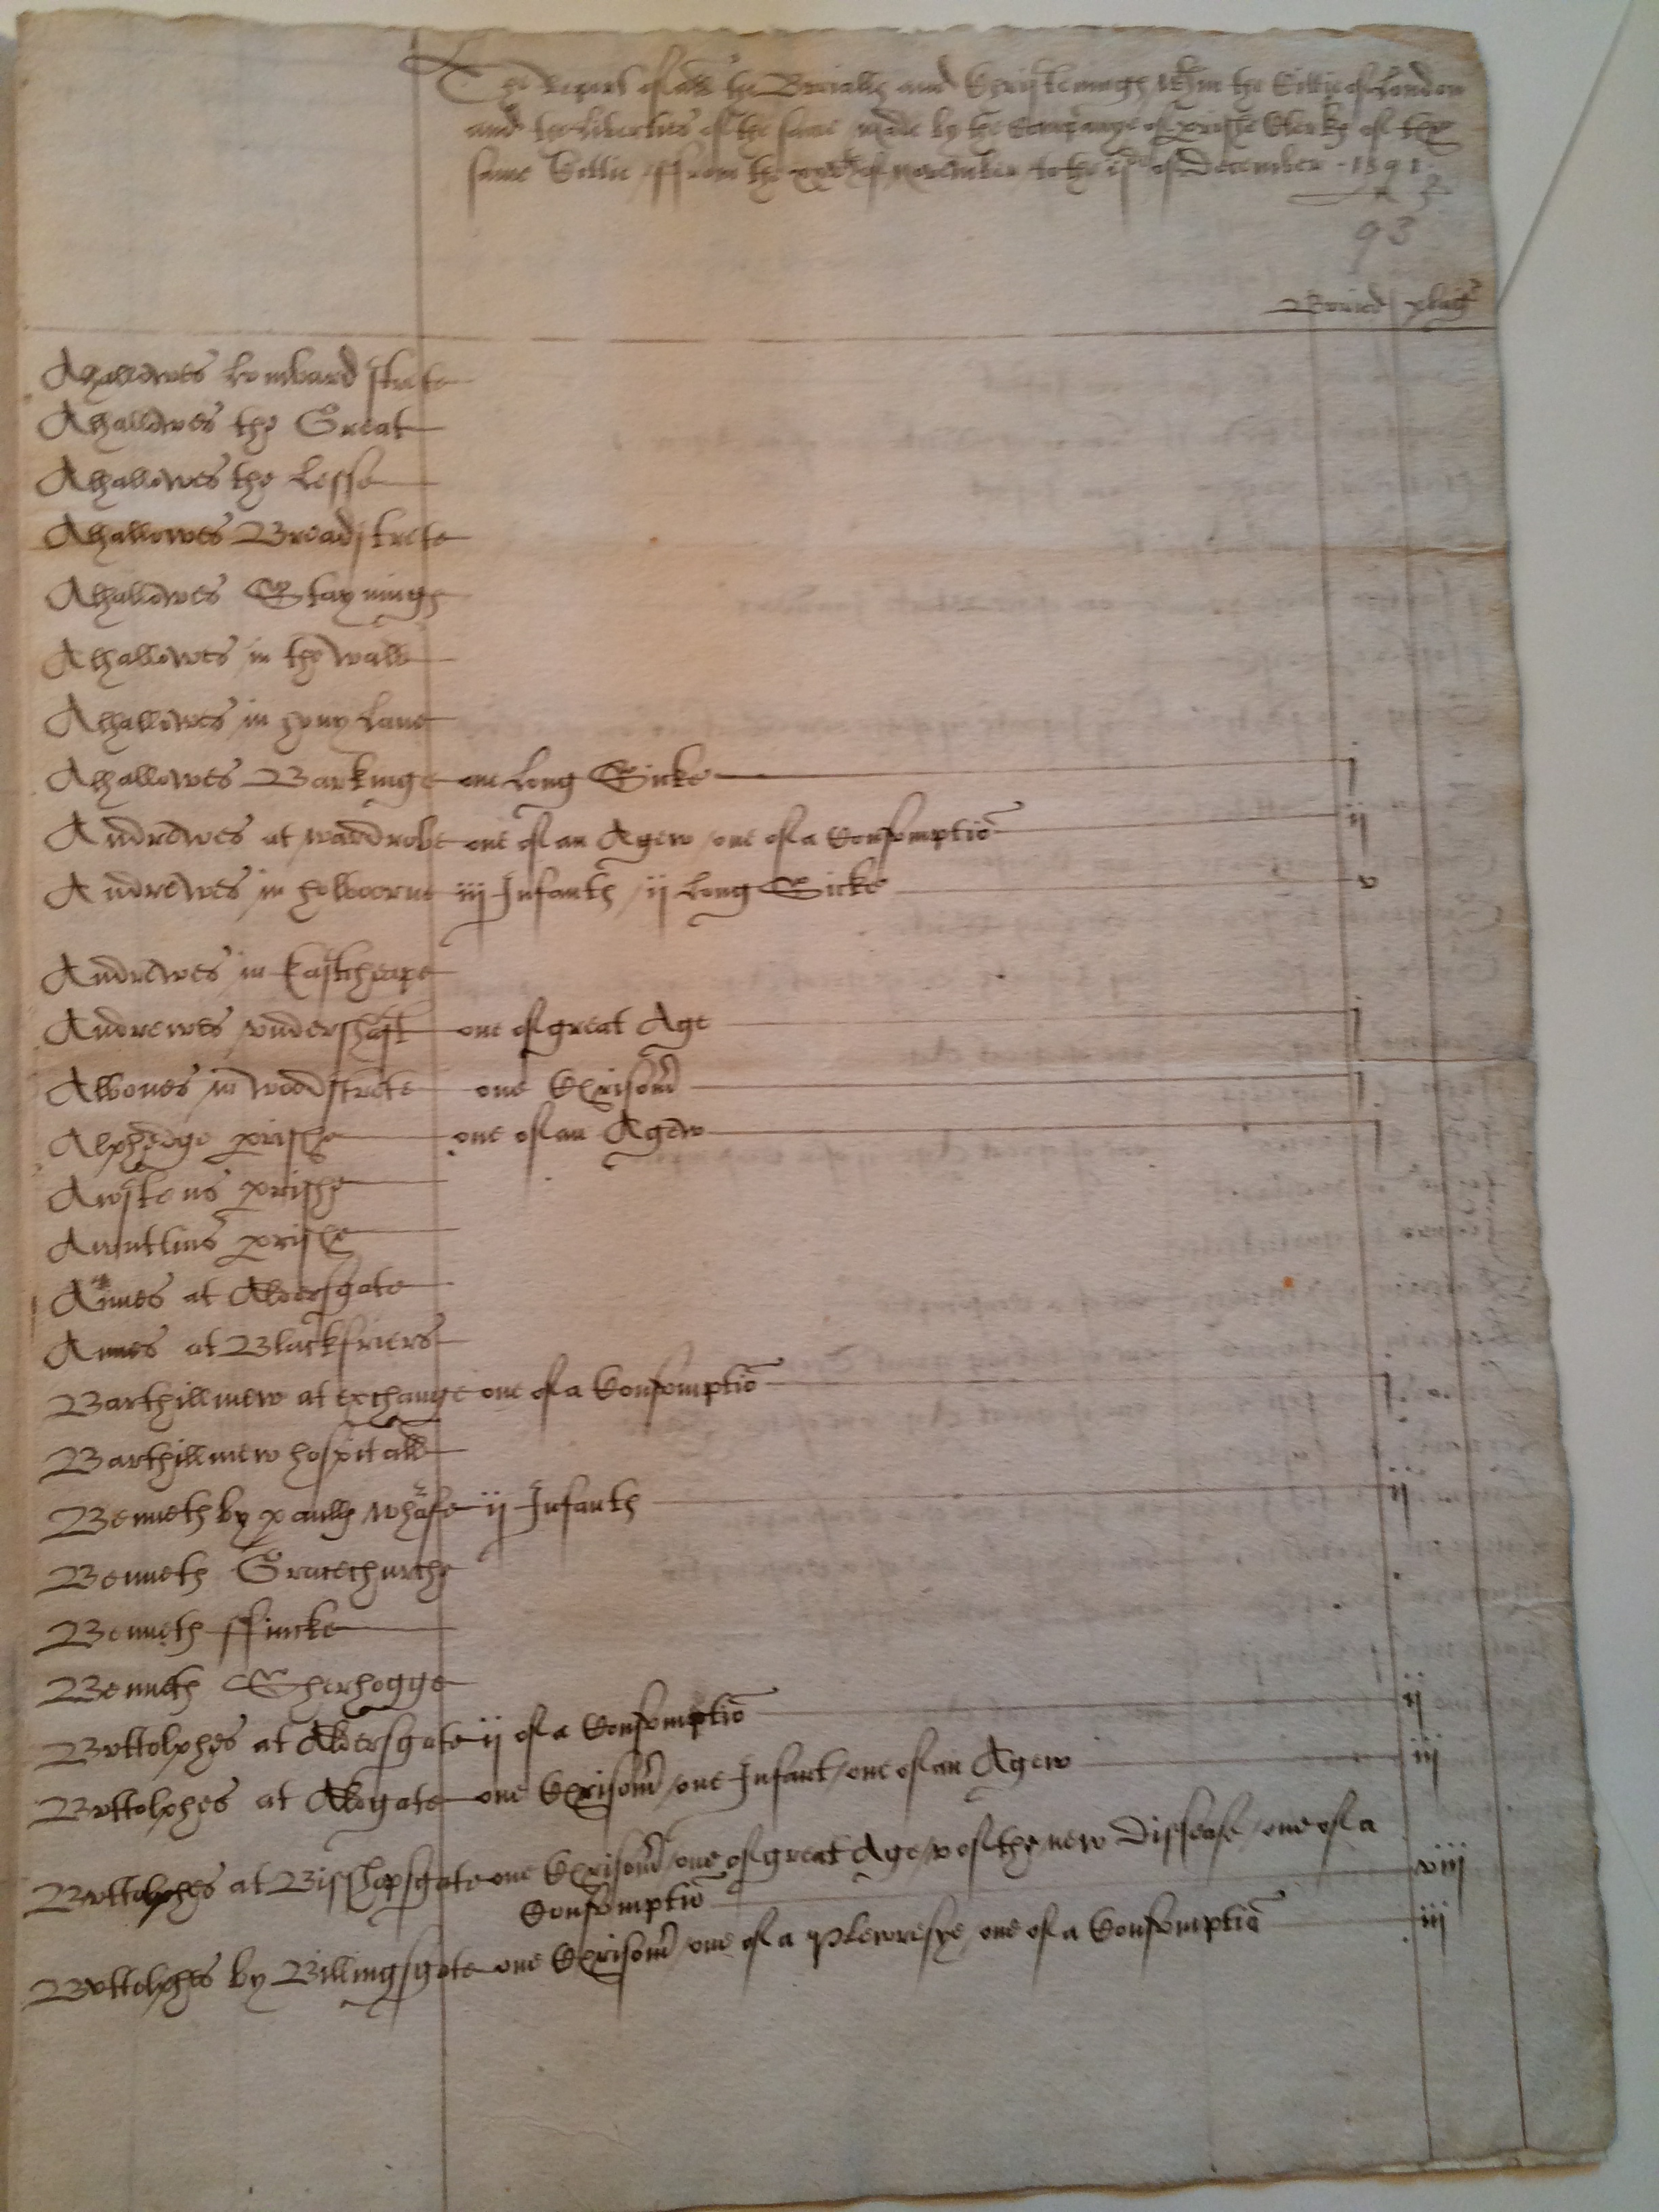 The Report of all the Burialls and Christenings wthin the Cittie of London
and the Liberties of the same made by the Companye of prishe Clerks of the
same Cittie / ffrom the of November to the of December - 1591
93
Buried plag
Alhallowes Lombard strete
Alhallowes the Great
Alhallowes the Lesse
Alhallowes Breadstrete
Alhallowes Staynings
Alhallowes in the wall
Alhallowes in hony Lane
Alhallowes Barkinge one Long Sicke j
Andrewes at wardrobe one of an Agew / one of a Consomptio ij
Andrewes in holborne iij Infants / ij Long Sicke v
Andrewes in Eastcheape
Andrewes vndershaft one of great Age j
Albones in woodstrete one Chrisom j
Alphedge prishe one of an Agew j
Awstens prishe
Awntlins prishe
Annes at Aldersgate
Annes at Blackfriers
Barthillmew at exchange one of a Consomptio j
Barthillmew hospitall
Bennets by paulls whafe ij Infants ij
Bennets Gratechurche
Bennets ffincke
Bennets Sherhogge
Buttolphes at Aldersgate ij of a Consomptio ij
Buttolphes at Algate one Chrisom / one Infant / one of an Agew iij
Buttolphes at Bisshopsgate one Chrisom / one of great Age / v of the new Dissease / one of a
Consomptio viij
Buttolphes by Billingsgate one Chrisom / one of a Plewresye / one of a Consomptio iij